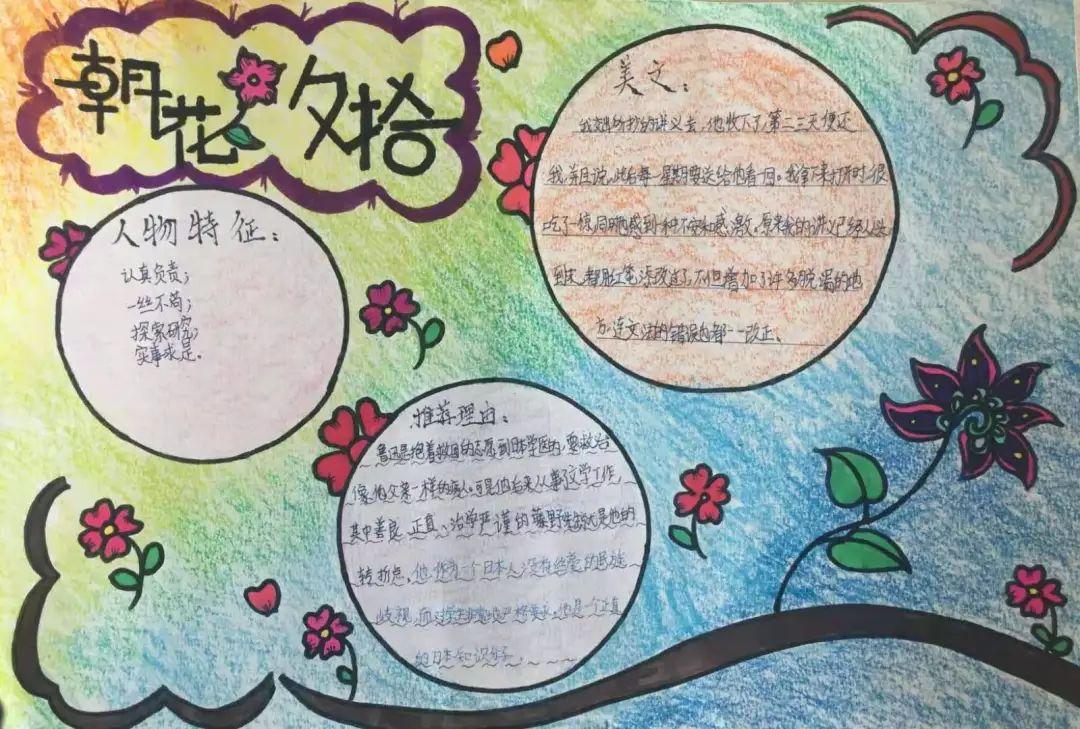 朝花夕拾
人物特征:
认真负责;
一丝不苟;
探索研究;
实事求是。
美文:
我交出所抄的讲义去,他收下了,第二三天便还
我,并且说,此后每一星期要送给他看一回。我拿下来打开时,很
吃了一惊,同时也感到一种不安和感激。原来我的讲义已经从头
到末,都用红笔添改过了,不但增加了许多脱漏的地
方,连文法的错误也都一一改正。
推荐理由:
鲁迅是抱着救国的志愿到日本学医的,要救治
像他父亲一样的病人。可是他后来从事了文学工作
其中善良、正直、治学严谨的藤野先生就是他的
转折点。他作为一个日本人没有狭隘的民族
歧视,而对学生 严格要求。他是一个正直
的日本知识分子